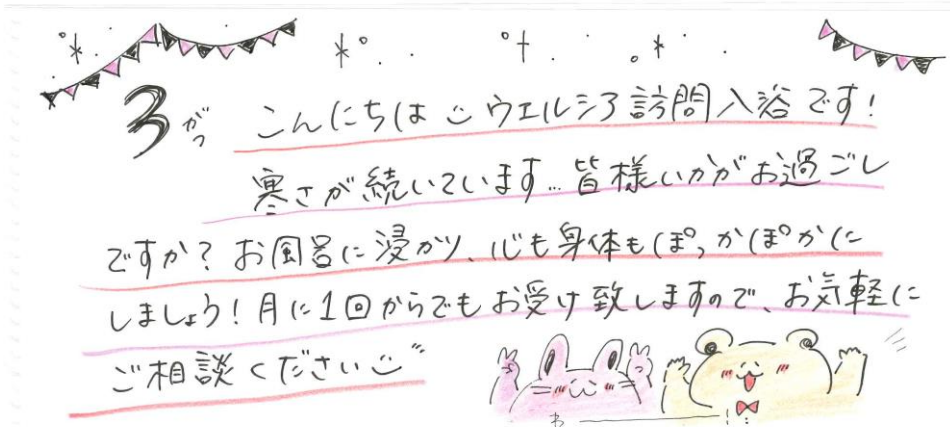 3がつ こんにちは ウエルシア訪問入浴です!
寒さが続いています…皆様いかがお過ごし
ですか?お風呂に浸かり、心も身体もぽっかぽかに
しましょう!月に1回からでもお受け致しますので、お気軽に
ご相談ください
わ